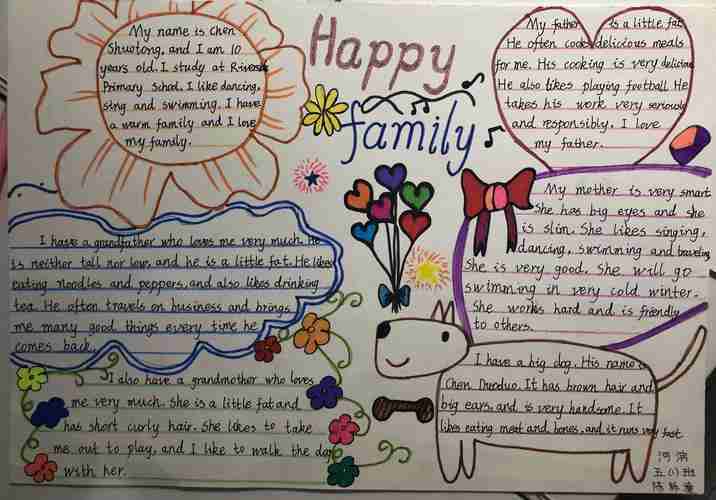 Happy
family
My name is Chen
Shuotong, and I am 10
years old. I study at Riverside
Primary School. I like dancing,
sing and swimming. I have
a warm family and I love
my family.
My father is a little fat.
He often cooks delicious meals
for me. His cooking is very delicious
He also likes playing football. He
takes his work very seriously
and responsibly. I love
my father.
My mother is very smart.
She has big eyes and she
is slim. She likes singing,
dancing, swimming and traveling
She is very good. She will go
swimming in very cold winter.
She works hard and is friendly
to others.
I have a grandfather who loves me very much. He
is neither tall nor low, and he is a little fat. He likes
eating noodles and peppers, and also likes drinking
tea. He often travels on business and brings
me many good things every time he
comes back.
I also have a grandmother who loves
me very much. She is a little fat and
has short curly hair. She likes to take
me out to play, and I like to walk the dog
with her.
I have a big dog. His name is
Chen Duoduo. It has brown hair and
big ears, and is very handsome. It
likes eating meat and bones, and it runs very fast.
河滨
五(1)班
陈